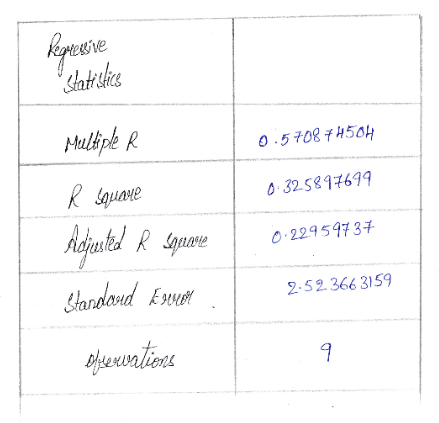 Regressive
Statistics
Multiple R 0.570874504
R square 0.325897699
Adjusted R square 0.22959737
Standard Error 2.523663159
Observations 9